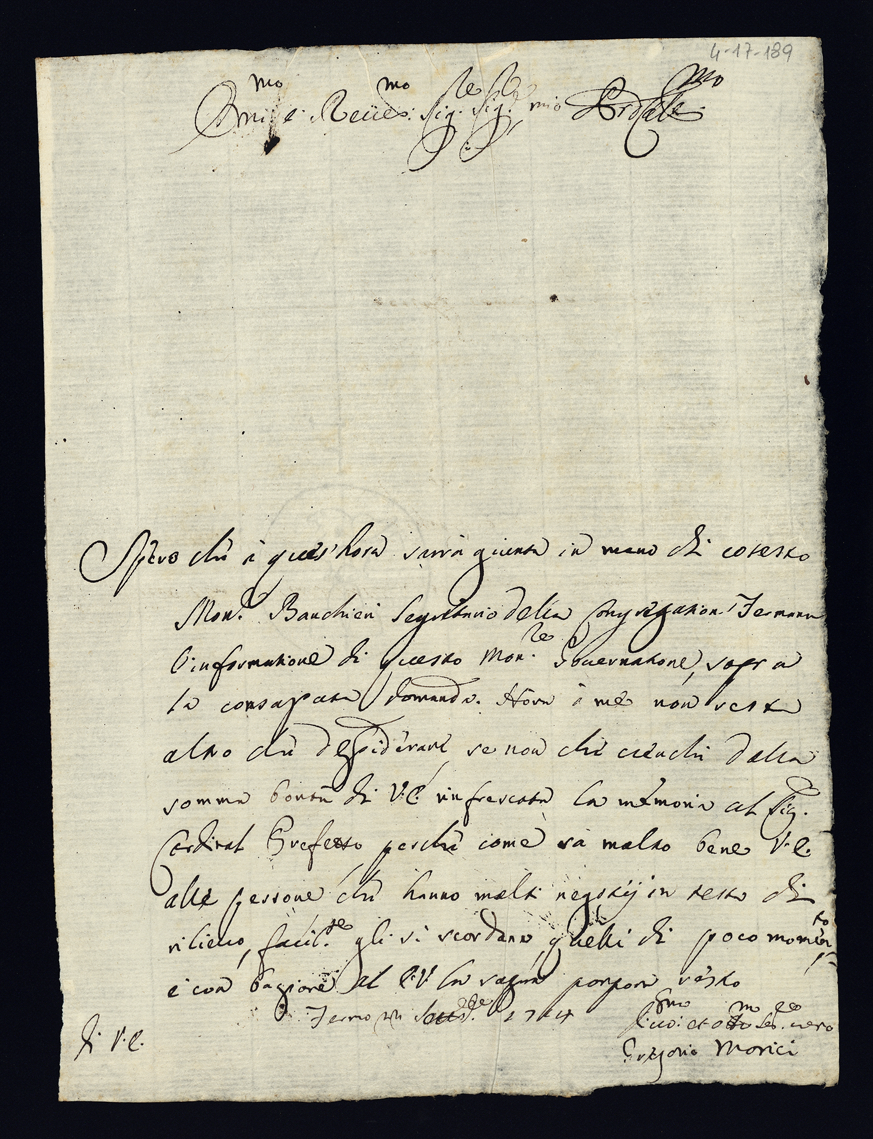 4-17-189
Emi.mo e Reue.mo Sig.re Sig.re mio P.rõ Cole.mo
Spero chè à quest'hora sarrà giunta in mano di cotesto
Mon.r Banchieri Segretario della Congregatione Fermana
l'informatione di questo Mon.re Gouernatore, sopra
la consaputa domanda. Hora à me non resta
altro chè desiderare, se non chè uenchi dalla
somma bontà di V.E. rinfrescata la memoria al Sig.
Cardinal Prefetto perchè come sà molto bene V.E.
alle persone chè hanno molti negotij in testa di
rilieuo, facil.te gli si scordano quelli di poco momen.to
e con bagiare al E.V. la sagra porpora resto
Fermo 1714
Di V.E.
Gregorio Morici